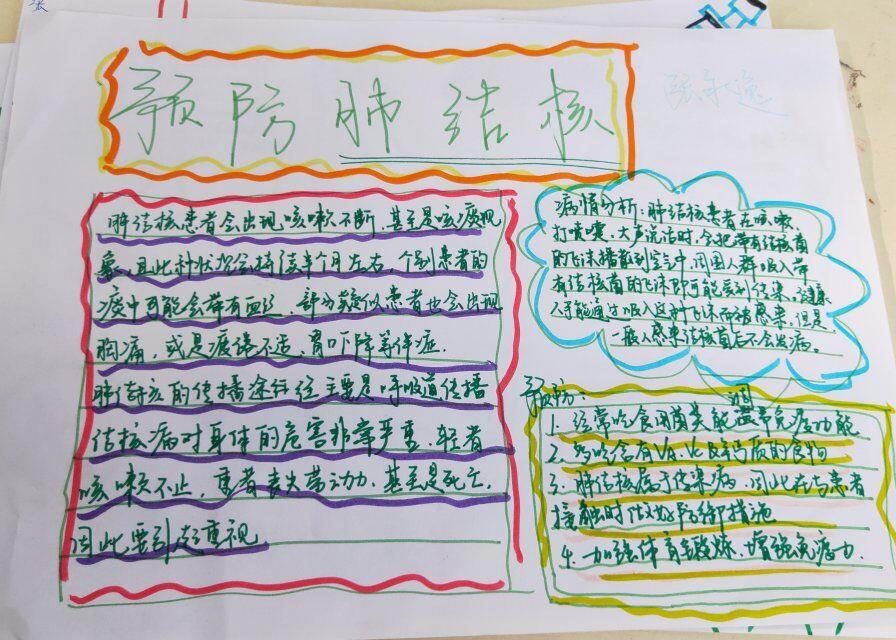 预防肺结核
肺结核患者会出现咳嗽不断,甚至是咳痰现
象,且此种状况会持续半个月左右,个别患者的
痰中可能会带有血丝,部分疑似患者也会出现
胸痛,或是疲倦不适,胃口下降等体症.
肺结核的传播途径主要是呼吸道传播
结核病对身体的危害非常严重,轻者
咳嗽不止,重者丧失劳动力,甚至是死亡,
因此要引起重视
病情分析:肺结核患者在咳嗽,
打喷嚏,大声说话时,会把带有结核菌
的飞沫播散到空气中,周围人群吸入带
有结核菌的飞沫即可能受到传染。健康
人可能通过吸入这种飞沫而被感染,但是
一般人感染结核菌后不会出病。
预防:
1.经常吃食用菌类能巩固免疫功能
2.多吃含有VA、VC及钙质的食物
3.肺结核属于传染病,因此在与患者
接触时做好防御措施
4.加强体育锻炼,增强免疫力.